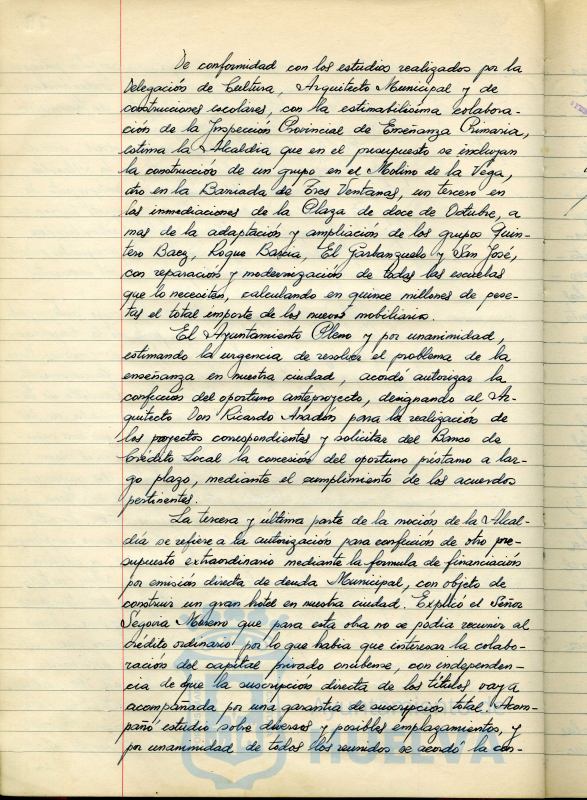 De conformidad con los estudios realizados por la
Delegación de Cultura, Arquitecto Municipal y de
construcciones escolares, con la estimabilísima colabora-
ción de la Inspección Provincial de Enseñanza Primaria,
estima la Alcaldía que en el presupuesto se incluyan
la construcción de un grupo en el Molino de la Vega,
otro en la Barriada de Tres Ventanas, un tercero en
las inmediaciones de la Plaza de doce de Octubre, a
mas de la adaptación y ampliación de los grupos Quin-
tero Baez, Roque Barcia, El Garbanzuelo y San José,
con reparación y modernización de todas las escuelas
que lo necesiten, calculando en quince millones de pese-
tas el total importe de los nuevos mobiliarios.
El Ayuntamiento Pleno y por unanimidad,
estimando la urgencia de resolver el problema de la
enseñanza en nuestra ciudad, acordó autorizar la
confección del oportuno anteproyecto, designando al Ar-
quitecto Don Ricardo Anadón para la realización de
los proyectos correspondientes y solicitar del Banco de
Crédito Local la concesión del oportuno préstamo a lar-
go plazo, mediante el cumplimiento de los acuerdos
pertinentes.
La tercera y última parte de la moción de la Alcal-
día se refiere a la autorización para confección de otro pre-
supuesto extraordinario mediante la formula de financiación
por emisión directa de deuda Municipal, con objeto de
construir un gran hotel en nuestra ciudad. Explicó el Señor
Segovia Moreno que para esta obra no se podia recurrir al
crédito ordinario por lo que habia que interesar la colabo-
ración del capital privado onubense, con independen-
cia de que la suscripción directa de los títulos vaya
acompañada por una garantía de suscripción total. Acom-
pañó estudio sobre diversos y posibles emplazamientos, y
por unanimidad de todos los reunidos se acordó la con-
HUELVA